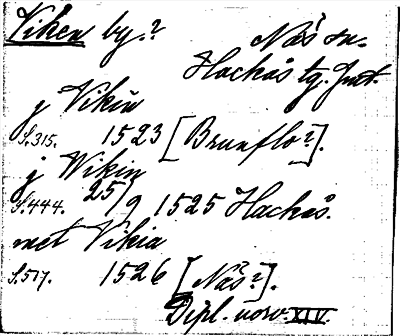 Viken by.?
Näs sn.
Hackås tg. Jmt.
j Vikin
S.315. 1523 [Brunflo?].
j Wikin
S.444. 25/9 1525 Hackås.
met Vikia
S.517. 1526 [Näs?].
Dipl. norv. XIV.